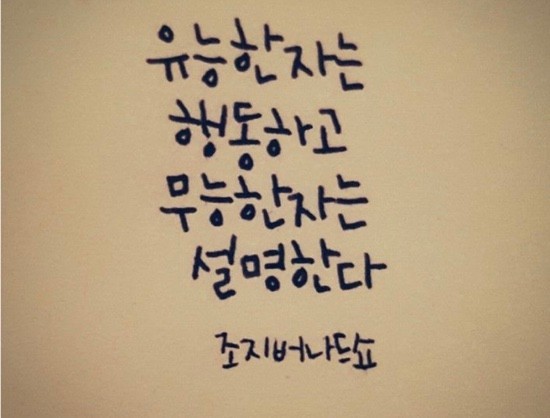 유능한자는
행동하고
무능한자는
설명한다
조지버나드쇼